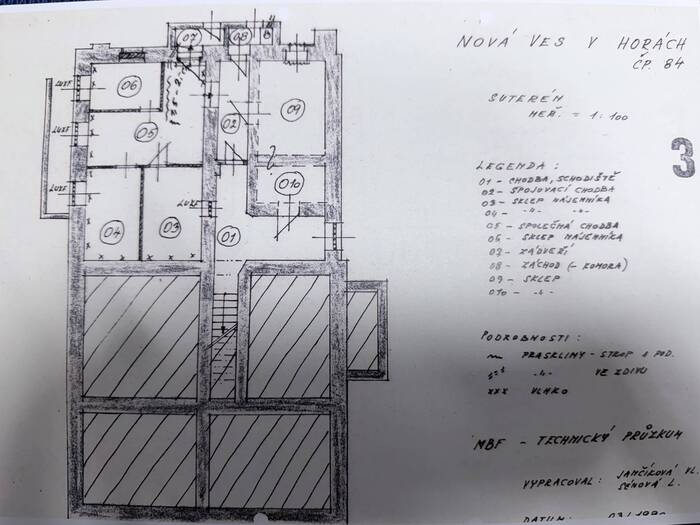 NOVÁ VES V HORÁCH
ČP. 84
SUTERÉN
MĚŘ. = 1:100
3
LEGENDA:
01 - CHODBA, SCHODIŠTĚ
02 - SPOJOVACÍ CHODBA
03 - SKLEP NÁJEMNÍKA
04 - -"- -"-
05 - SPOLEČNÁ CHODBA
06 - SKLEP NÁJEMNÍKA
07 - ZÁDVEŘÍ
08 - ZÁCHOD (- KOMORA)
09 - SKLEP
010 - -"-
PODROBNOSTI:
PRASKLINY - STROP A POD.
-"- VE ZDIVU
xxx VLHKO
MBF - TECHNICKÝ PRŮZKUM
VYPRACOVAL: JANČÍKOVÁ VL.
SÉNOVÁ L.
DATUM:
07
08
06
09
05
02
010
04
03
01
LUXF
LUXF
LUXF
LUXF